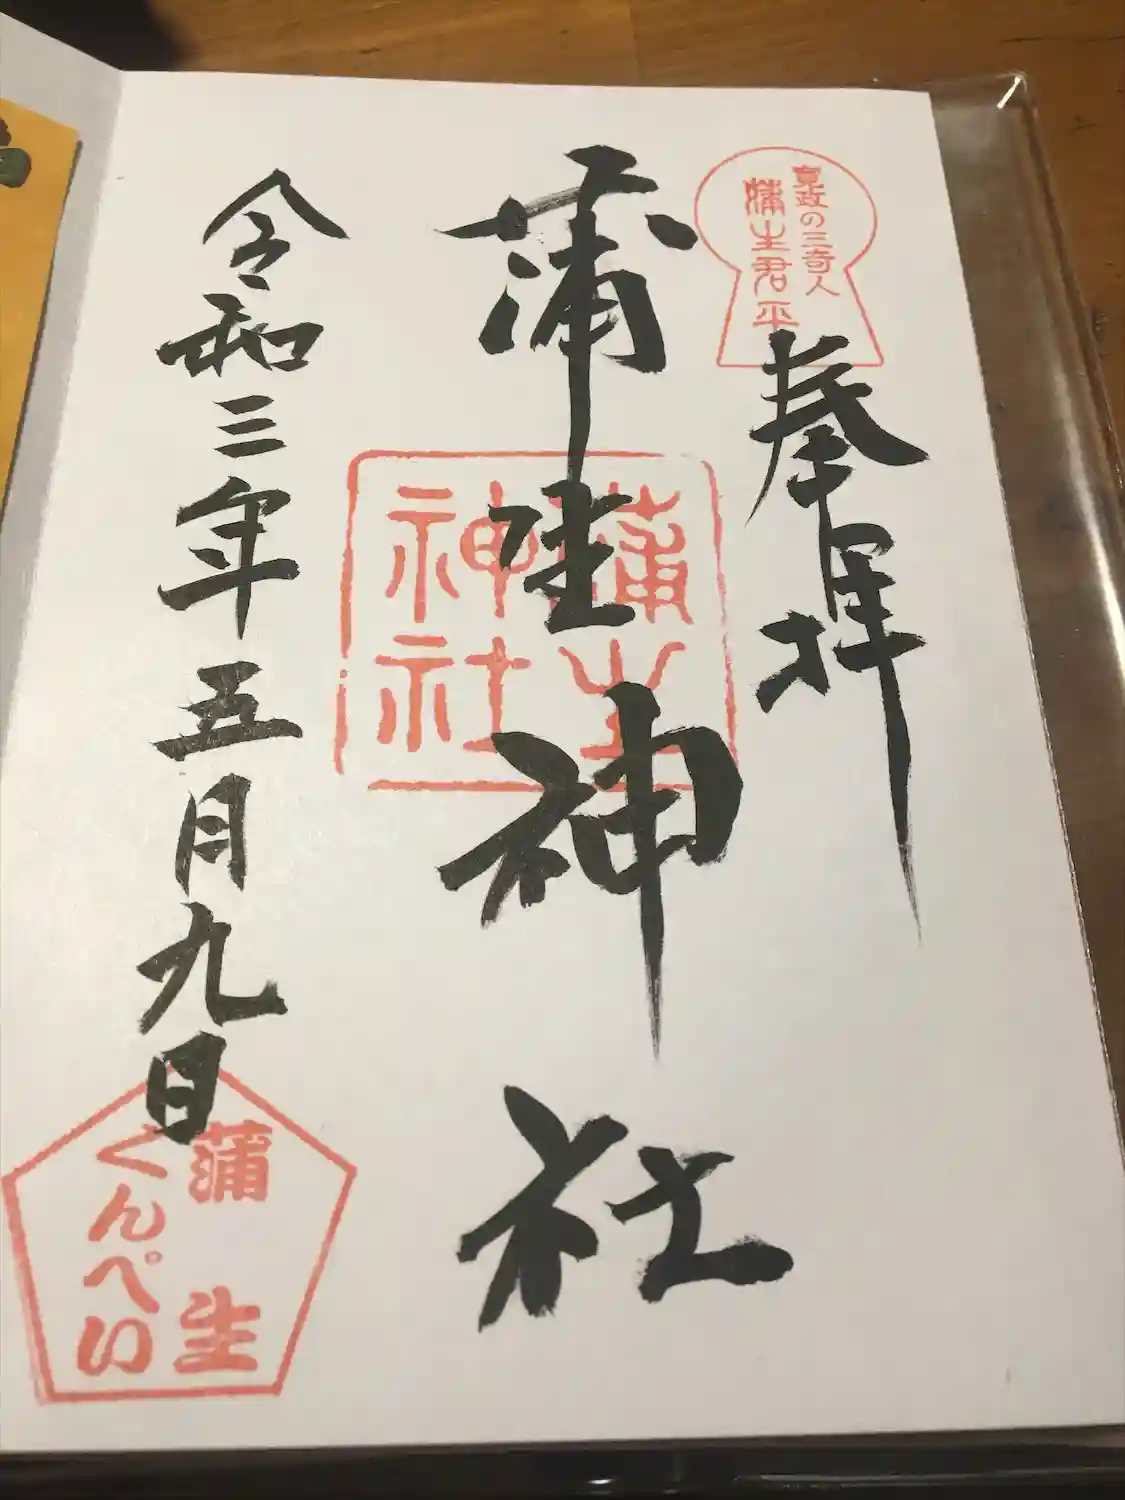 寛政の三奇人
蒲生君平
奉拝
蒲生神社
蒲生
神社
令和三年五月九日
蒲生
くんぺい